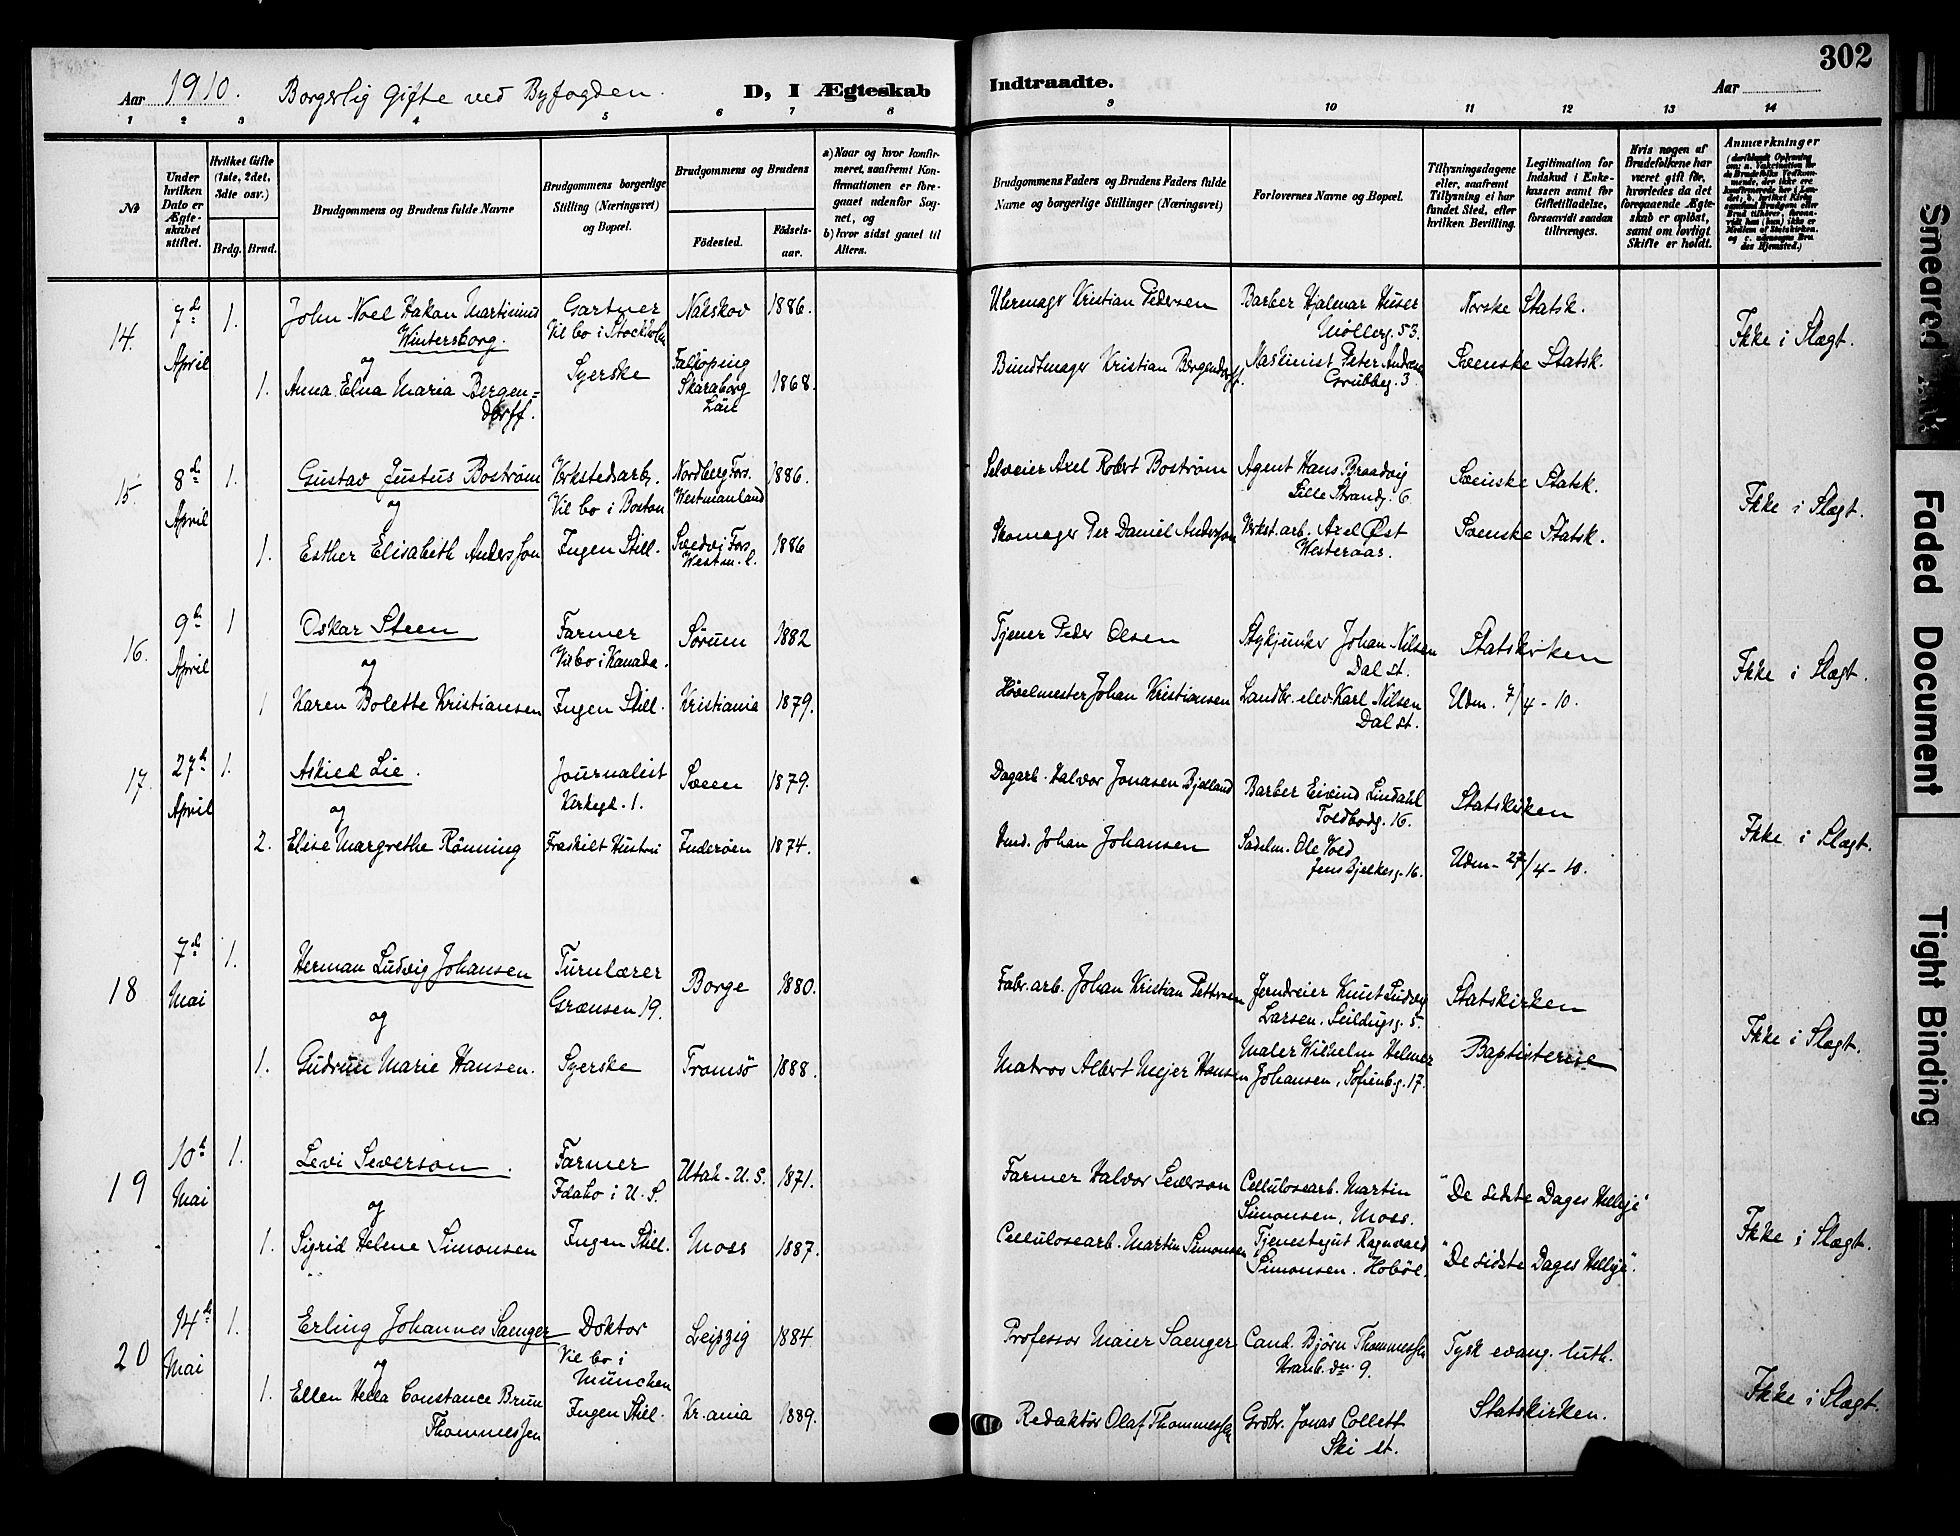 302
Aar 1910. Borgerlig Gifte ved Byfogden. D, I Ægteskab Indtraadte. Aar
1 2 3 4 5 6 7 8 9 10 11 12 13 14
№
Under hvilken Dato er Ægteskabet stiftet.
Hvilket Gifte (1ste, 2det, 3die osv.)
Brdg. Brud.
Brudgommens og Brudens fulde Navne
Brudgommens borgerlige Stilling (Næringsvei) og Bopæl.
Brudgommens og Brudens
Födested. Födselsaar.
a) Naar og hvor konfirmeret, saafremt Konfirmationen er foregaaet udenfor Sognet, og
b) hvor sidst gaaet til Alters.
Brudgommens Faders og Brudens Faders fulde Navne og borgerlige Stillinger (Næringsvei)
Forlovernes Navne og Bopæl.
Tillysningsdagene eller, saafremt Tillysning ei har fundet Sted, efter hvilken Bevilling.
Legitimation for Indskud i Enkekassen samt for Giftetilladelse, forsaavidt saadan tiltrænges.
Hvis nogen af Brudefolkene har været gift før, hvorledes da det foregaaende Ægteskab er opløst, samt om lovligt Skifte er holdt.
Anmærkninger
14. 7de April 1. John Noel Hakon Martinius Wintersborg. Gartner Vil bo i Stockholm Nakskov 1886. Uhrmagr Kristian Pedersen Barber Hjalmar Huser Møllerg. 53. Norske Statsk. Ikke i Slægt.
og
1. Anna Elna Maria Bergendorff. Syerske Falloping Skaraborg Län 1868. Bundtmager Kristian Bergendorff. Maskinist Peter Andersen Grubbeg. 3. Svenske Statsk.
15 8de April 1. Gustav Justus Boström Verkstedsarb. Vil bo i Boston Nordberg Fors. Westmanland 1886. Selveier Axel Robert Boström Agent Hans Braadvig Lille Strandg. 6 Svenske Statsk. Ikke i Slægt.
og
1. Esther Elisabeth Andersson Ingen Still. Svedvi Fors. Westm. l. 1886 Skomager Per Daniel Andersson Verkst. arb. Axel Øst Westeraas. Svenske Statsk.
16. 9de April 1 Oskar Steen Farmer Vil bo i Kanada. Sørum 1882 Tjener Peder Olsen Stykjunker Johan Nilsen Dal st. Statskirken Ikke i Slægt.
og
1 Karen Bolette Kristiansen Ingen Still. Kristiania 1879. Høvelmester Johan Kristiansen Landbr. elev. Karl Nilsen Dal st. Udm. 7/4-10.
17. 27de April 1. Askied Lie. Journalist Kirkegt. 1. Sveen 1879. Dagarb. Halvor Jonasen Bjelland Barber Eivind Lindahl Toldbodg. 16. Statskirken
og
2. Elise Margrethe Rönning Fraskilt Hustru Inderøen 1874. Hmd. Johan Johansen Sadelm. Ole Vold Jens Bjelkesg. 16. Udm. 27/4-10. Ikke i Slægt.
18 7de Mai 1. Herman Ludvig Johansen Turnlærer Grænsen 19. Borge 1880. Fabr. arb. Johan Kristian Pettersen Jerndreier Knut Ludvig Larsen, Seildugsg. 5. Statskirken
og
1. Gudrun Marie Hansen. Syerske Tromsö 1888. Matros Albert Mejer Hansen Maler Wilhelm Helmer Johansen, Sofienbg. 17. Baptisterne Ikke i Slægt.
19 10de Mai 1. Levi Severson. Farmer Idaho i U. S. Utah - U. S. 1871. Farmer Halvor Severson Cellulosearb. Martin Simonsen, Moss. "De sidste Dages Hellige"
og
1. Sigrid Helene Simonsen Ingen Still. Moss 1887. Cellulosearb. Martin Simonsen Tjenestegut Ragnvald Simonsen. Hobøl. "De sidste Dages Hellige". Ikke i Slægt.
20 14de Mai 1. Erling Johannes Saenger Doktor Vil bo i München Leipzig 1884. Professor Maier Saenger Cand. Bjørn Thommessen 9. Tysk evang. luth.
og
1. Ellen Hella Constance Brun Thommessen Ingen Still. Kr.ania 1889. Redaktör Olaf Thommessen Grdbr. Jonas Collett Ski st. Statskirken. Ikke i Slægt.
Smeared Ink
Faded Document
Tight Binding